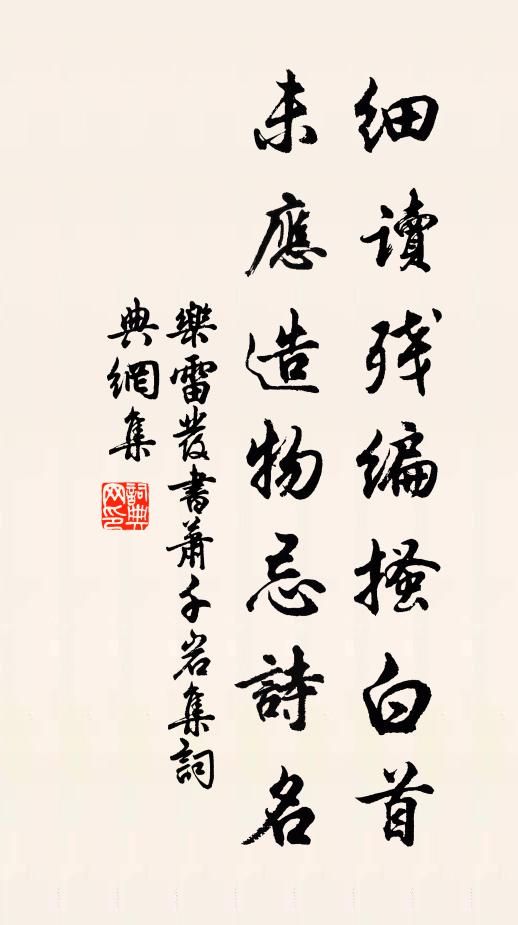 细读残编搔白首
未應造物忌詩名
樂雷發書蕭千岩集詞
典網集
詞典網印